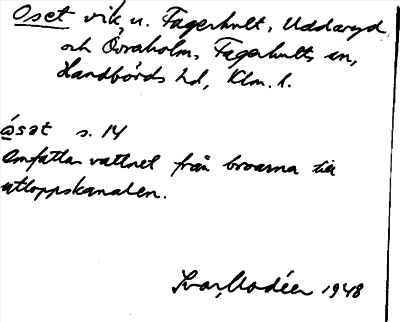 Oset vik u. Fagerhult, Uddaryd
och Övraholm, Fagerhults sn,
Handbörds hd, Klm. l.
óset s. 14
Omfattar vattnet från broarna till
utloppskanalen.
Ivar Modéer 1948